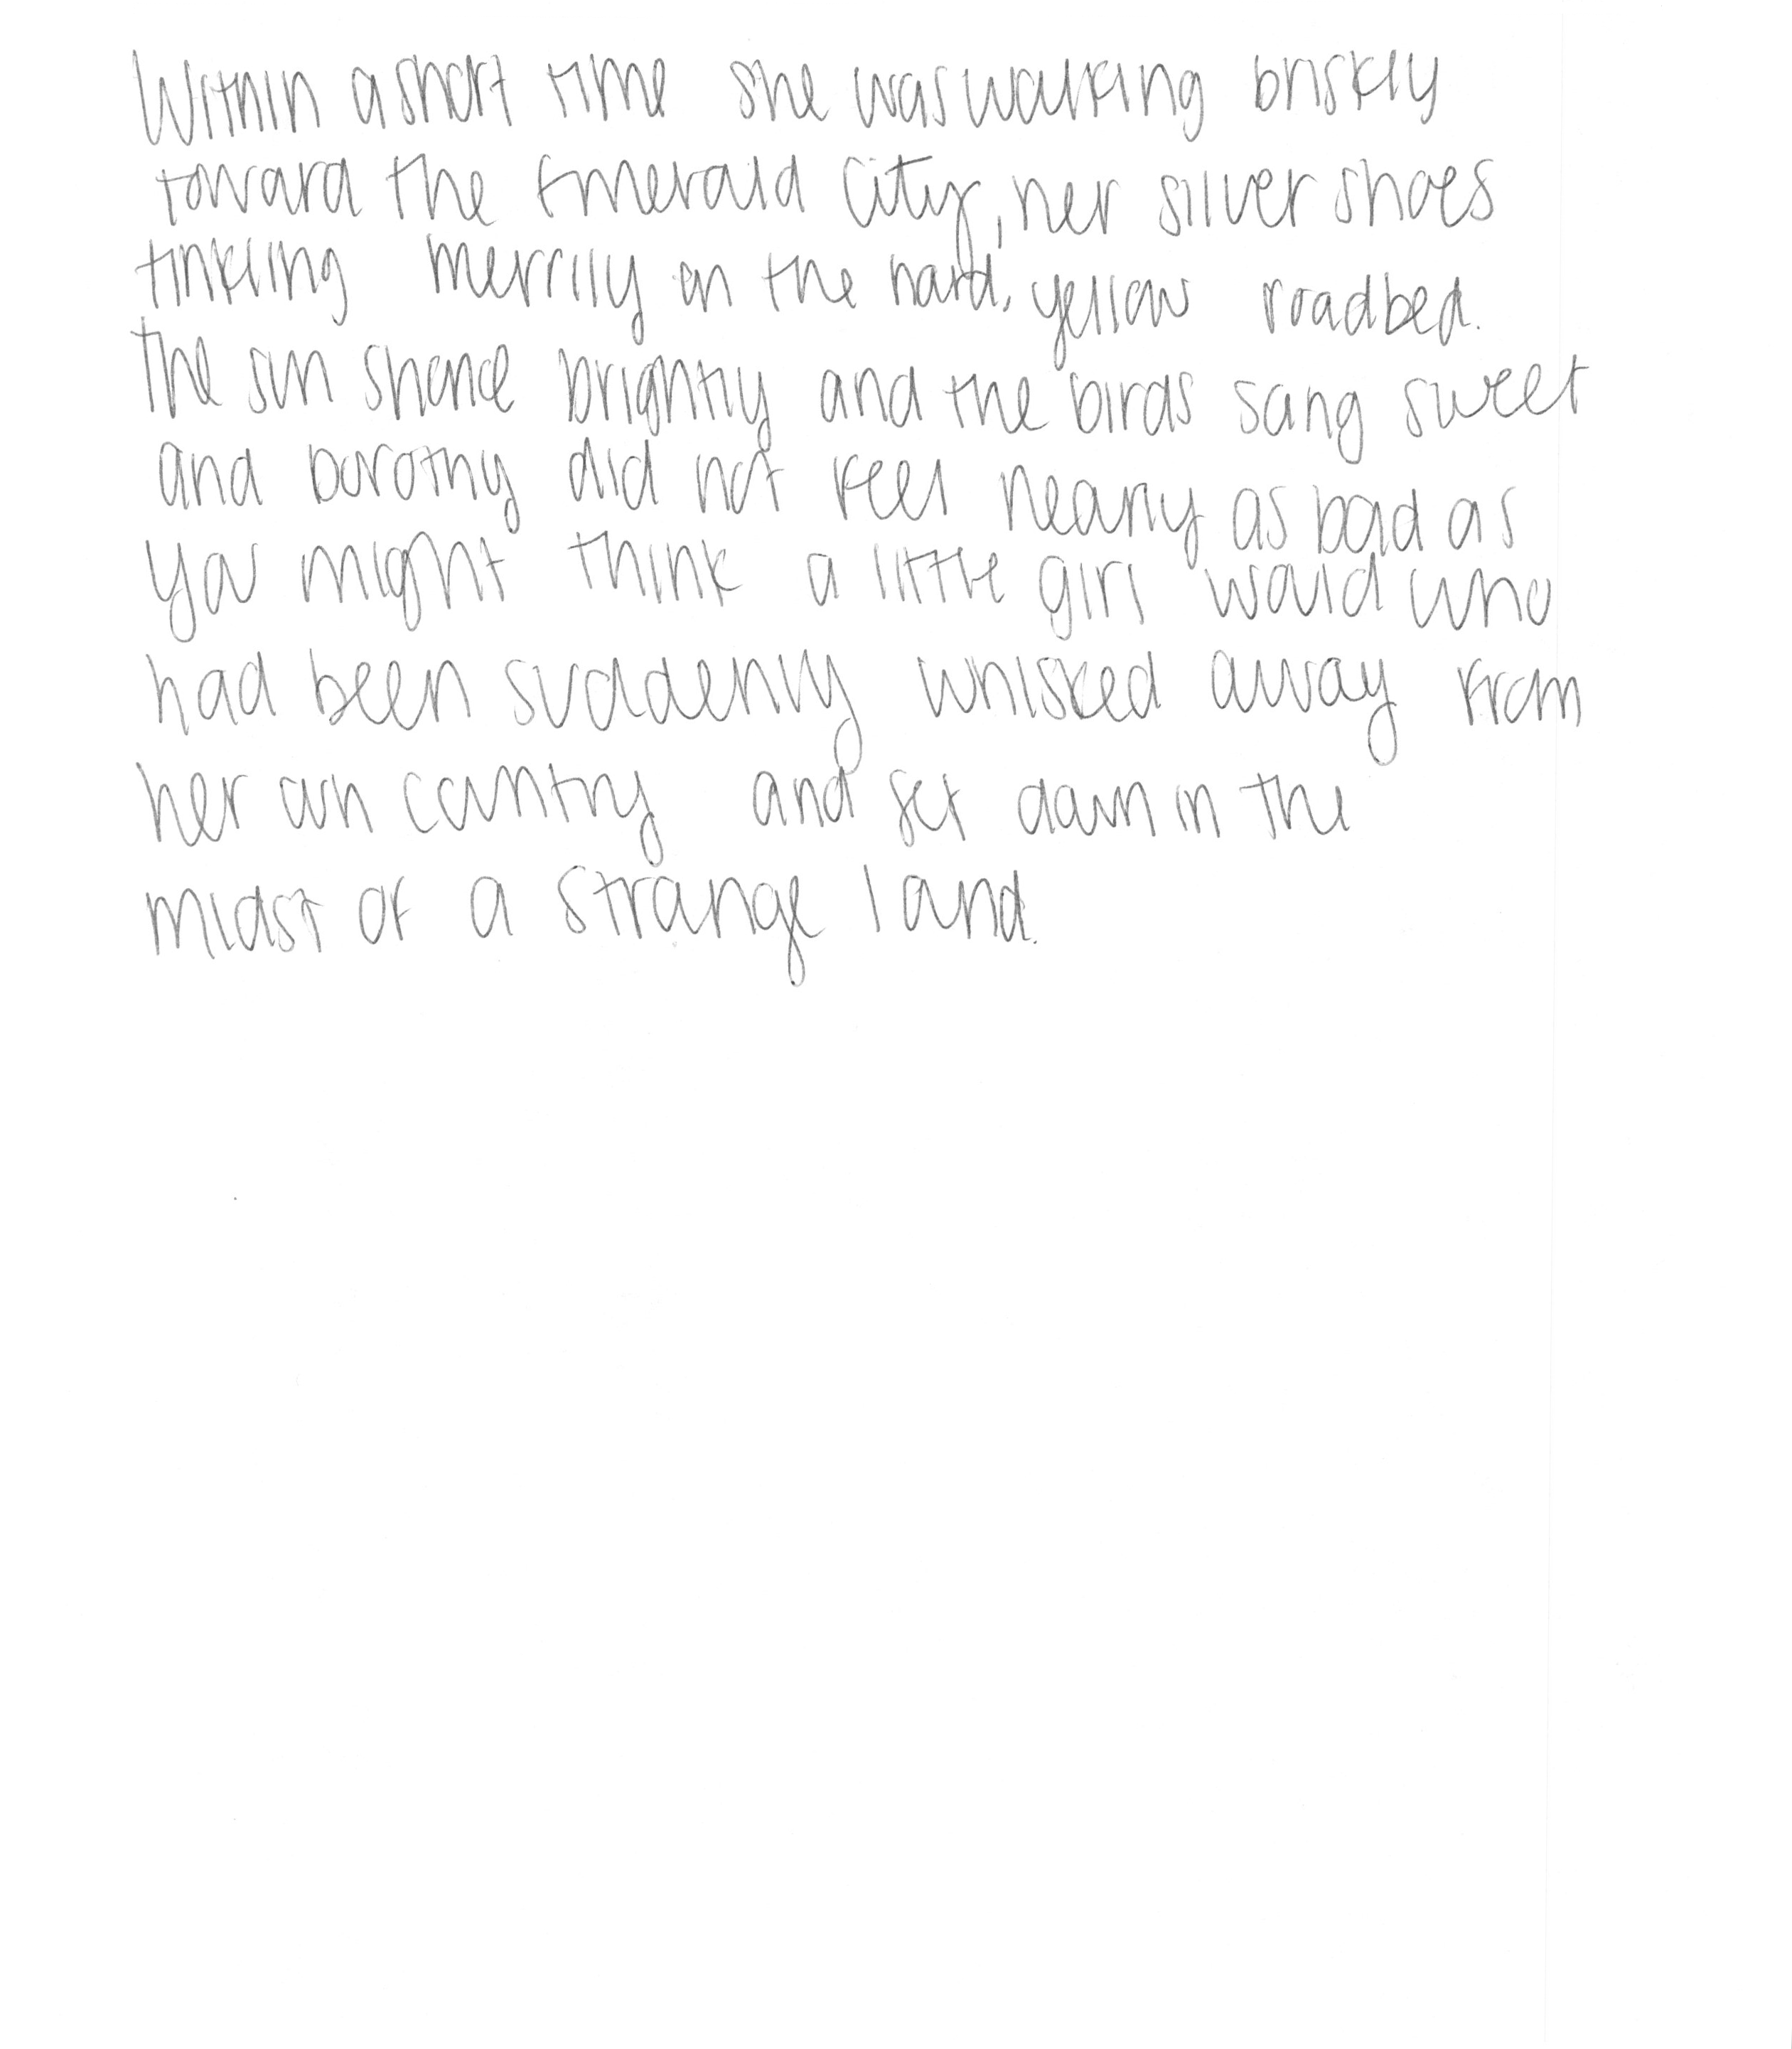 Within a short time she was walking briskly
toward the Emerald City, her silver shoes
tinkling merrily on the hard, yellow roadbed.
The sun shone brightly and the birds sang sweet
and Dorothy did not feel nearly as bad as
you might think a little girl would who
had been suddenly whisked away from
her own country and set down in the
midst of a strange land.